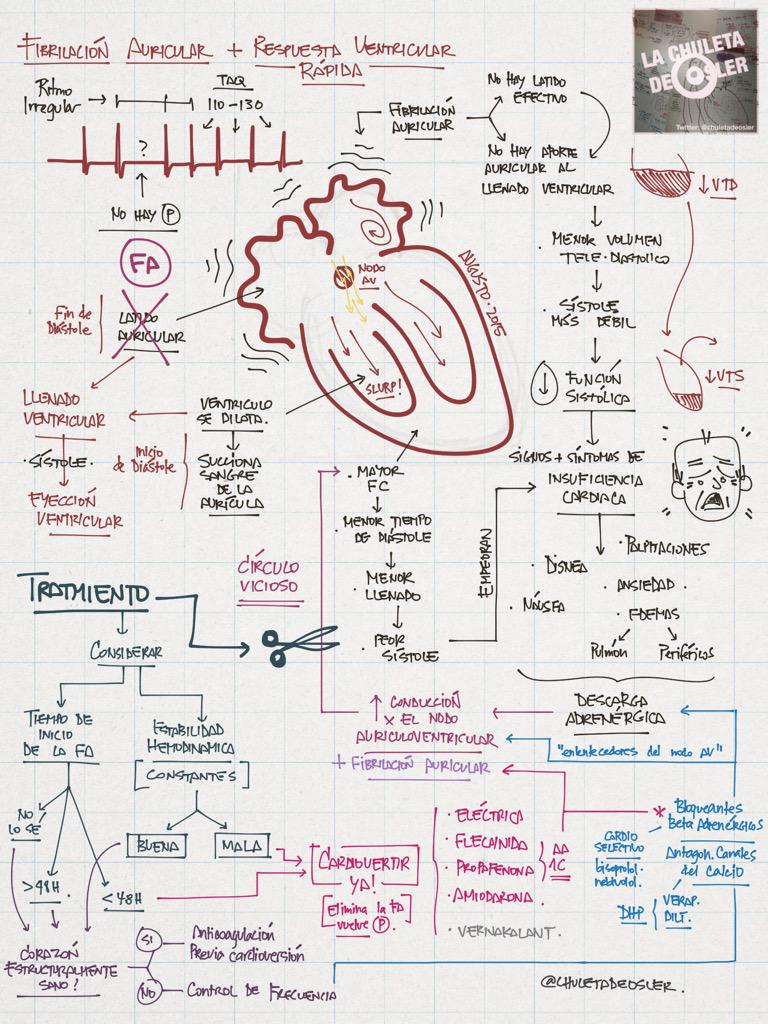 Fibrilación Auricular + Respuesta Ventricular
Rápida
LA CHULETA
DE OSLER
Twitter: @chuletadeosler
Ritmo
Irregular
TAQ
110-130
?
No hay P
Fibrilación
Auricular
No hay latido
efectivo
No hay aporte
auricular al
llenado ventricular
↓VTD
Menor volumen
tele-diastólico
Sístole
más débil
↓ Función
sistólica
↓VTS
Signos + síntomas de
Insuficiencia
Cardiaca
· Palpitaciones
· Disnea
Ansiedad ·
· Náusea
· Edemas
Pulmón
Periféricos
FA
Nodo
AV
AUGUSTO·2015
SLURP!
Fin de
Diástole
Latido
Auricular
Llenado
Ventricular
· Sístole ·
Eyección
Ventricular
Ventriculo
se dilata.
Inicio
de Diástole
Succiona
sangre
de la
aurícula
· Mayor
FC
Menor tiempo
de diástole
Menor
llenado
Peor
sístole
Empeoran
Círculo
vicioso
Tratmiento
Considerar
Tiempo de
inicio
de la FA
Estabilidad
Hemodinamica
[Constantes]
No
lo sé
>48H
<48H
Buena
Mala
Corazón
estructuralmente
sano?
Si
Anticoagulación
Previa cardioversión
No
Control de Frecuencia
↑ Conducción
x el nodo
auriculoventricular
+ Fibrilación Auricular
Descarga
Adrenérgica
"enlentecedores del nodo AV"
Cardiovertir
ya!
[Elimina la FA
vuelve P.]
· Eléctrica
· Flecainida
· Propafenona
· Amiodarona.
· Vernakalant.
AA
1C
* Bloqueantes
Beta Adrenérgicos
Cardio
selectivo
bisoprolol.
nebivolol.
Antagon. Canales
del Calcio
DHP
Verap.
Dilt.
@chuletadeosler.